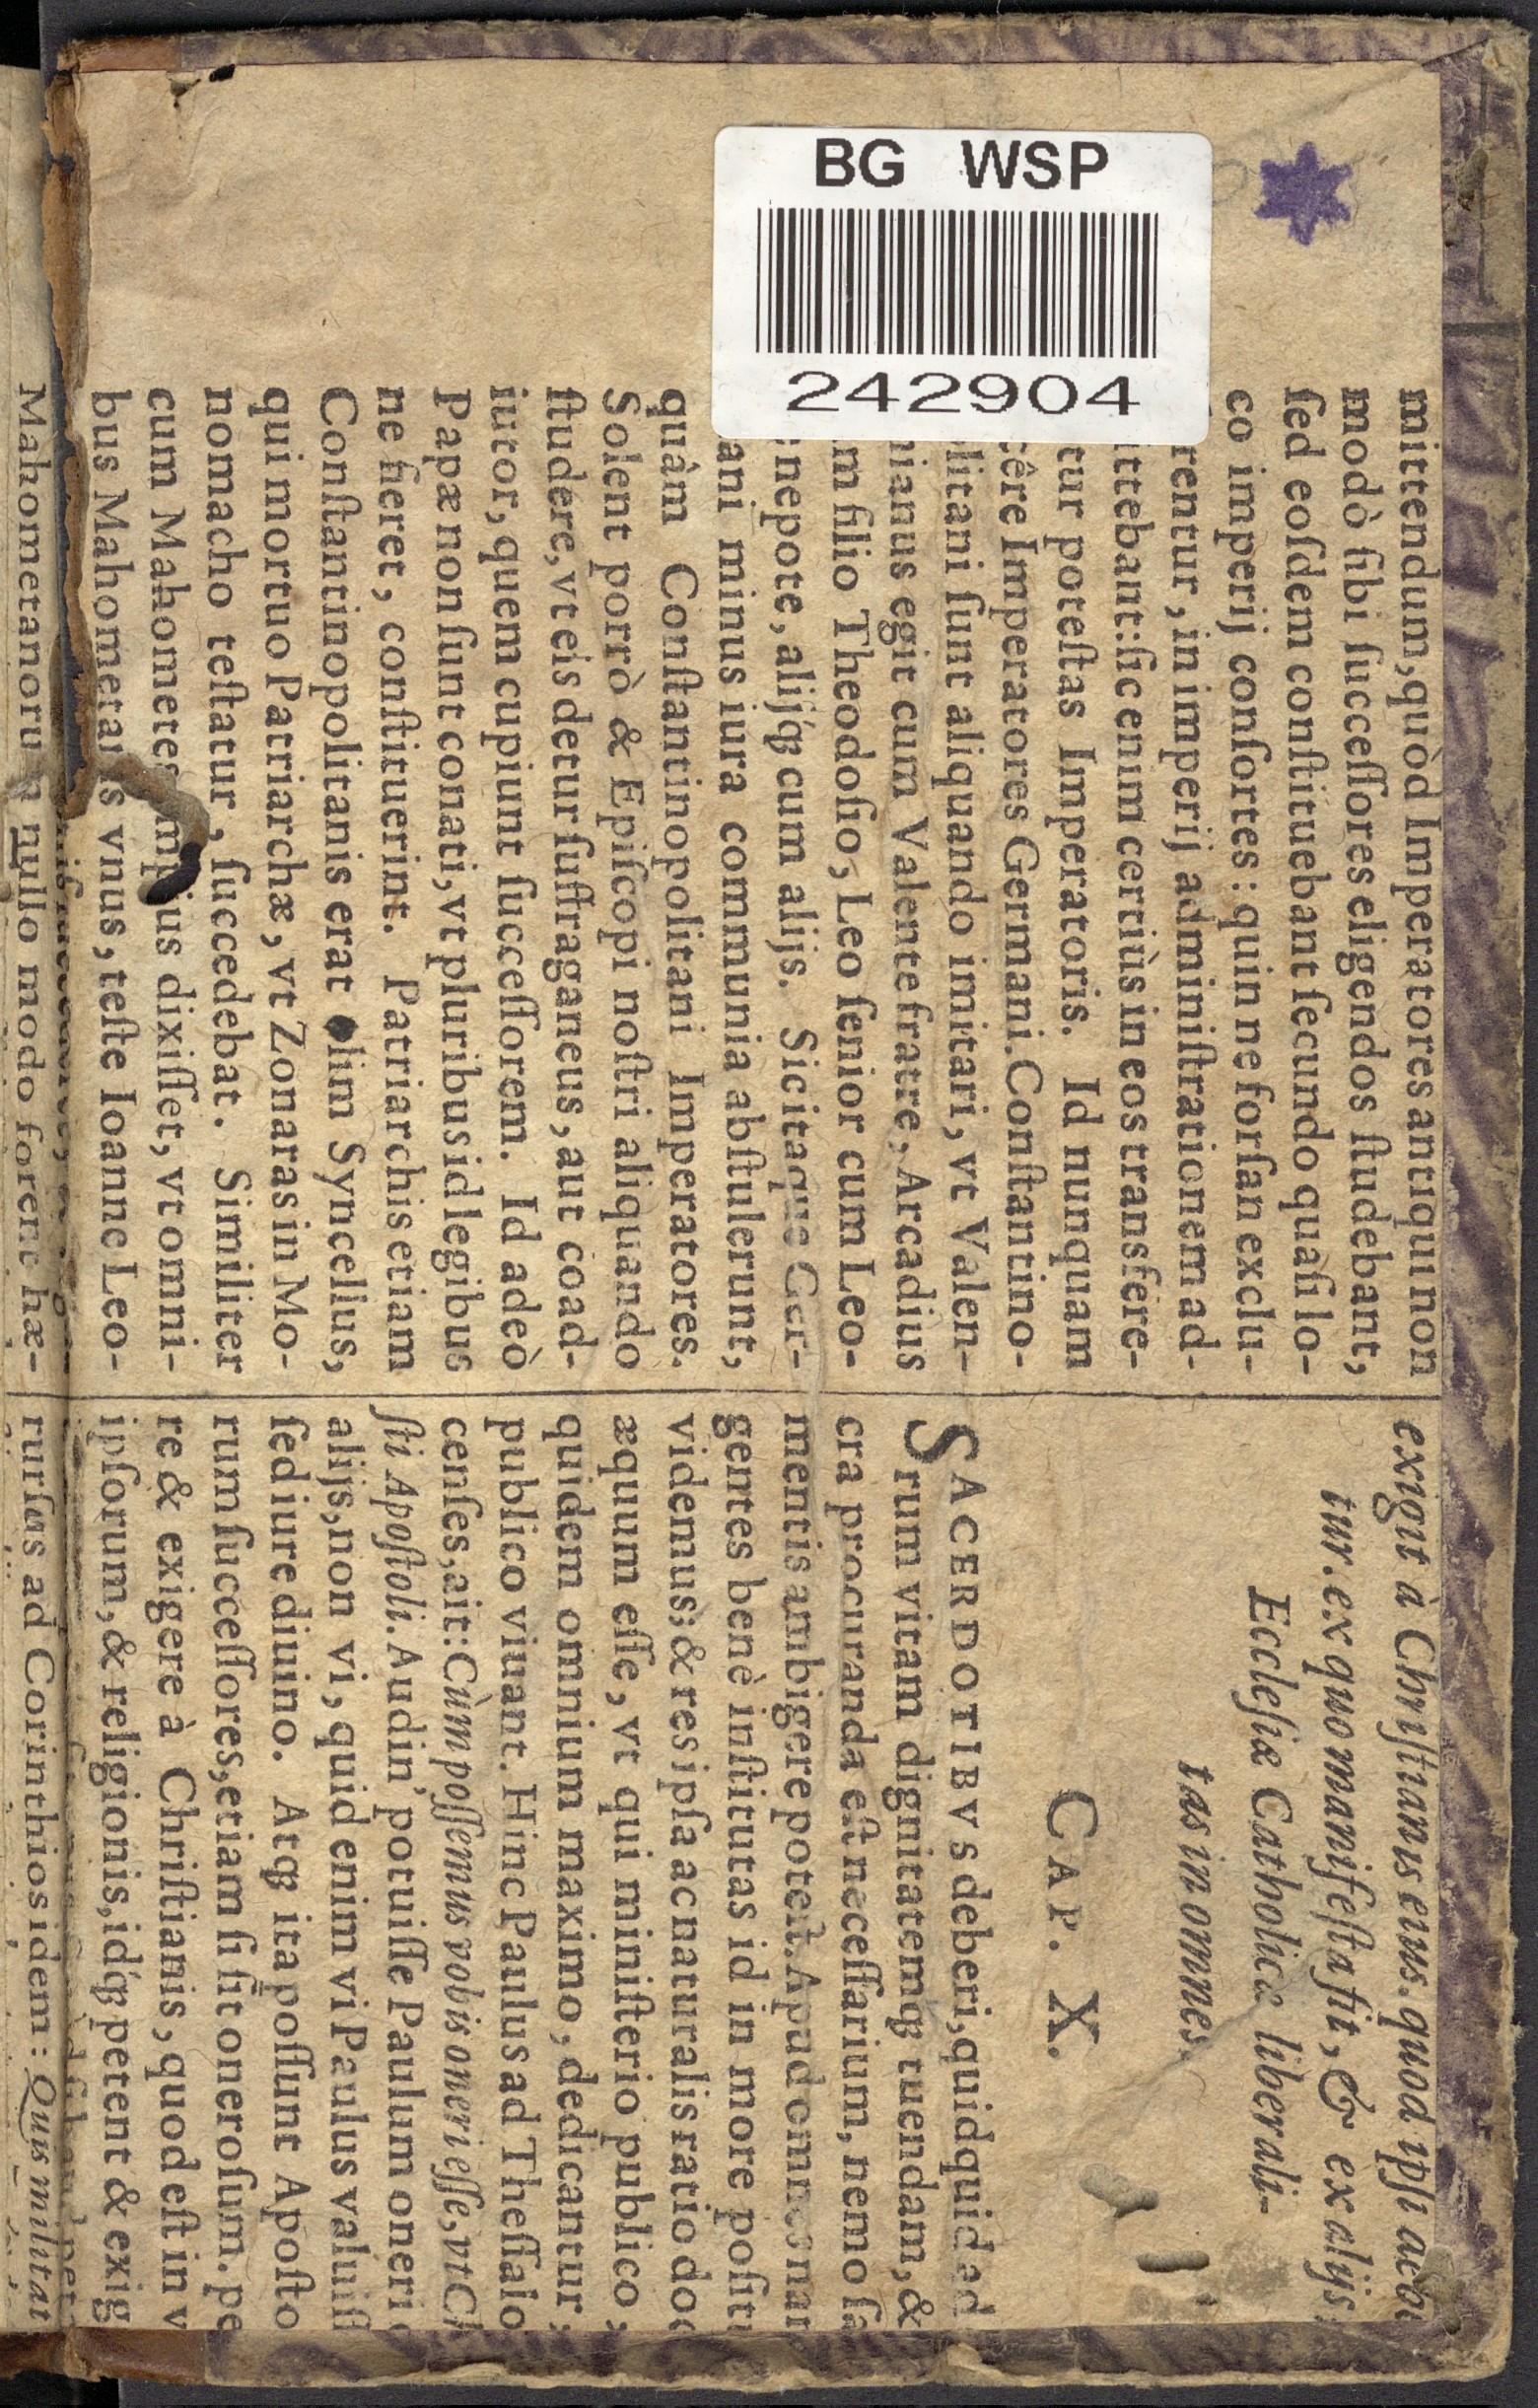 BG WSP
242904
mittendum, quòd Imperatores antiqui non
modò ſibi ſucceſſores eligendos ſtudebant,
ſed eoſdem conſtituebant ſecundo quaſi lo-
co imperij conſortes: quin ne forſan exclu-
rentur, in imperij adminiſtrationem ad-
ittebant: ſic enim certiùs in eos transfere-
tur poteſtas Imperatoris. Id nunquam
cêre Imperatores Germani. Conſtantino-
litani ſunt aliquando imitari, vt Valen-
nianus egit cum Valente fratre, Arcadius
m filio Theodoſio, Leo ſenior cum Leo-
nepote, alijq́ꝫ cum alijs. Sic itaque Ger-
ani minus iura communia abſtulerunt,
quàm Conſtantinopolitani Imperatores.
Solent porrò & Epiſcopi noſtri aliquando
ſtudere, vt eis detur ſuffraganeus, aut coad-
iutor, quem cupiunt ſucceſſorem. Id adeò
Papæ non ſunt conati, vt pluribus id legibus
ne fieret, conſtituerint. Patriarchis etiam
Conſtantinopolitanis erat olim Syncellus,
qui mortuo Patriarchæ, vt Zonaras in Mo-
nomacho teſtatur, ſuccedebat. Similiter
cum Mahometes impius dixiſſet, vt omni-
bus Mahometanis vnus, teſte Ioanne Leo-
Mahometanorū nullo modo forent hæ-
exigit à Chriſtianis eius. quod ipſi debe
tur. ex quo manifeſta ſit, & ex alijs
Eccleſiæ Catholicæ liberali-
tas in omnes.
CAP. X.
SACERDOTIBVS deberi, quidquid ad
rum vitam dignitatemqꝫ tuendam, &
cra procuranda eſt neceſſarium, nemo ſa
mentis ambigere poteſt. Apud omnes nam
gentes benè inſtitutas id in more poſitu
videmus; & res ipſa ac naturalis ratio doc
æquum eſſe, vt qui miniſterio publico,
quidem omnium maximo, dedicantur,
publico viuant. Hinc Paulus ad Theſſalo
cenſes, ait: Cùm poſſemus vobis oneri eſſe, vt Ch
ſti Apoſtoli. Audin' potuiſſe Paulum oneri
alijs, non vi, quid enim vi Paulus valuiſſ
ſed iure diuino. Atqꝫ ita poſſunt Apoſto
rum ſucceſſores, etiam ſi ſit oneroſum. pe
re & exigere à Chriſtianis, quod eſt in v
ipſorum, & religionis, idq́ꝫ petent & exig
rurſus ad Corinthios idem: Quis militat